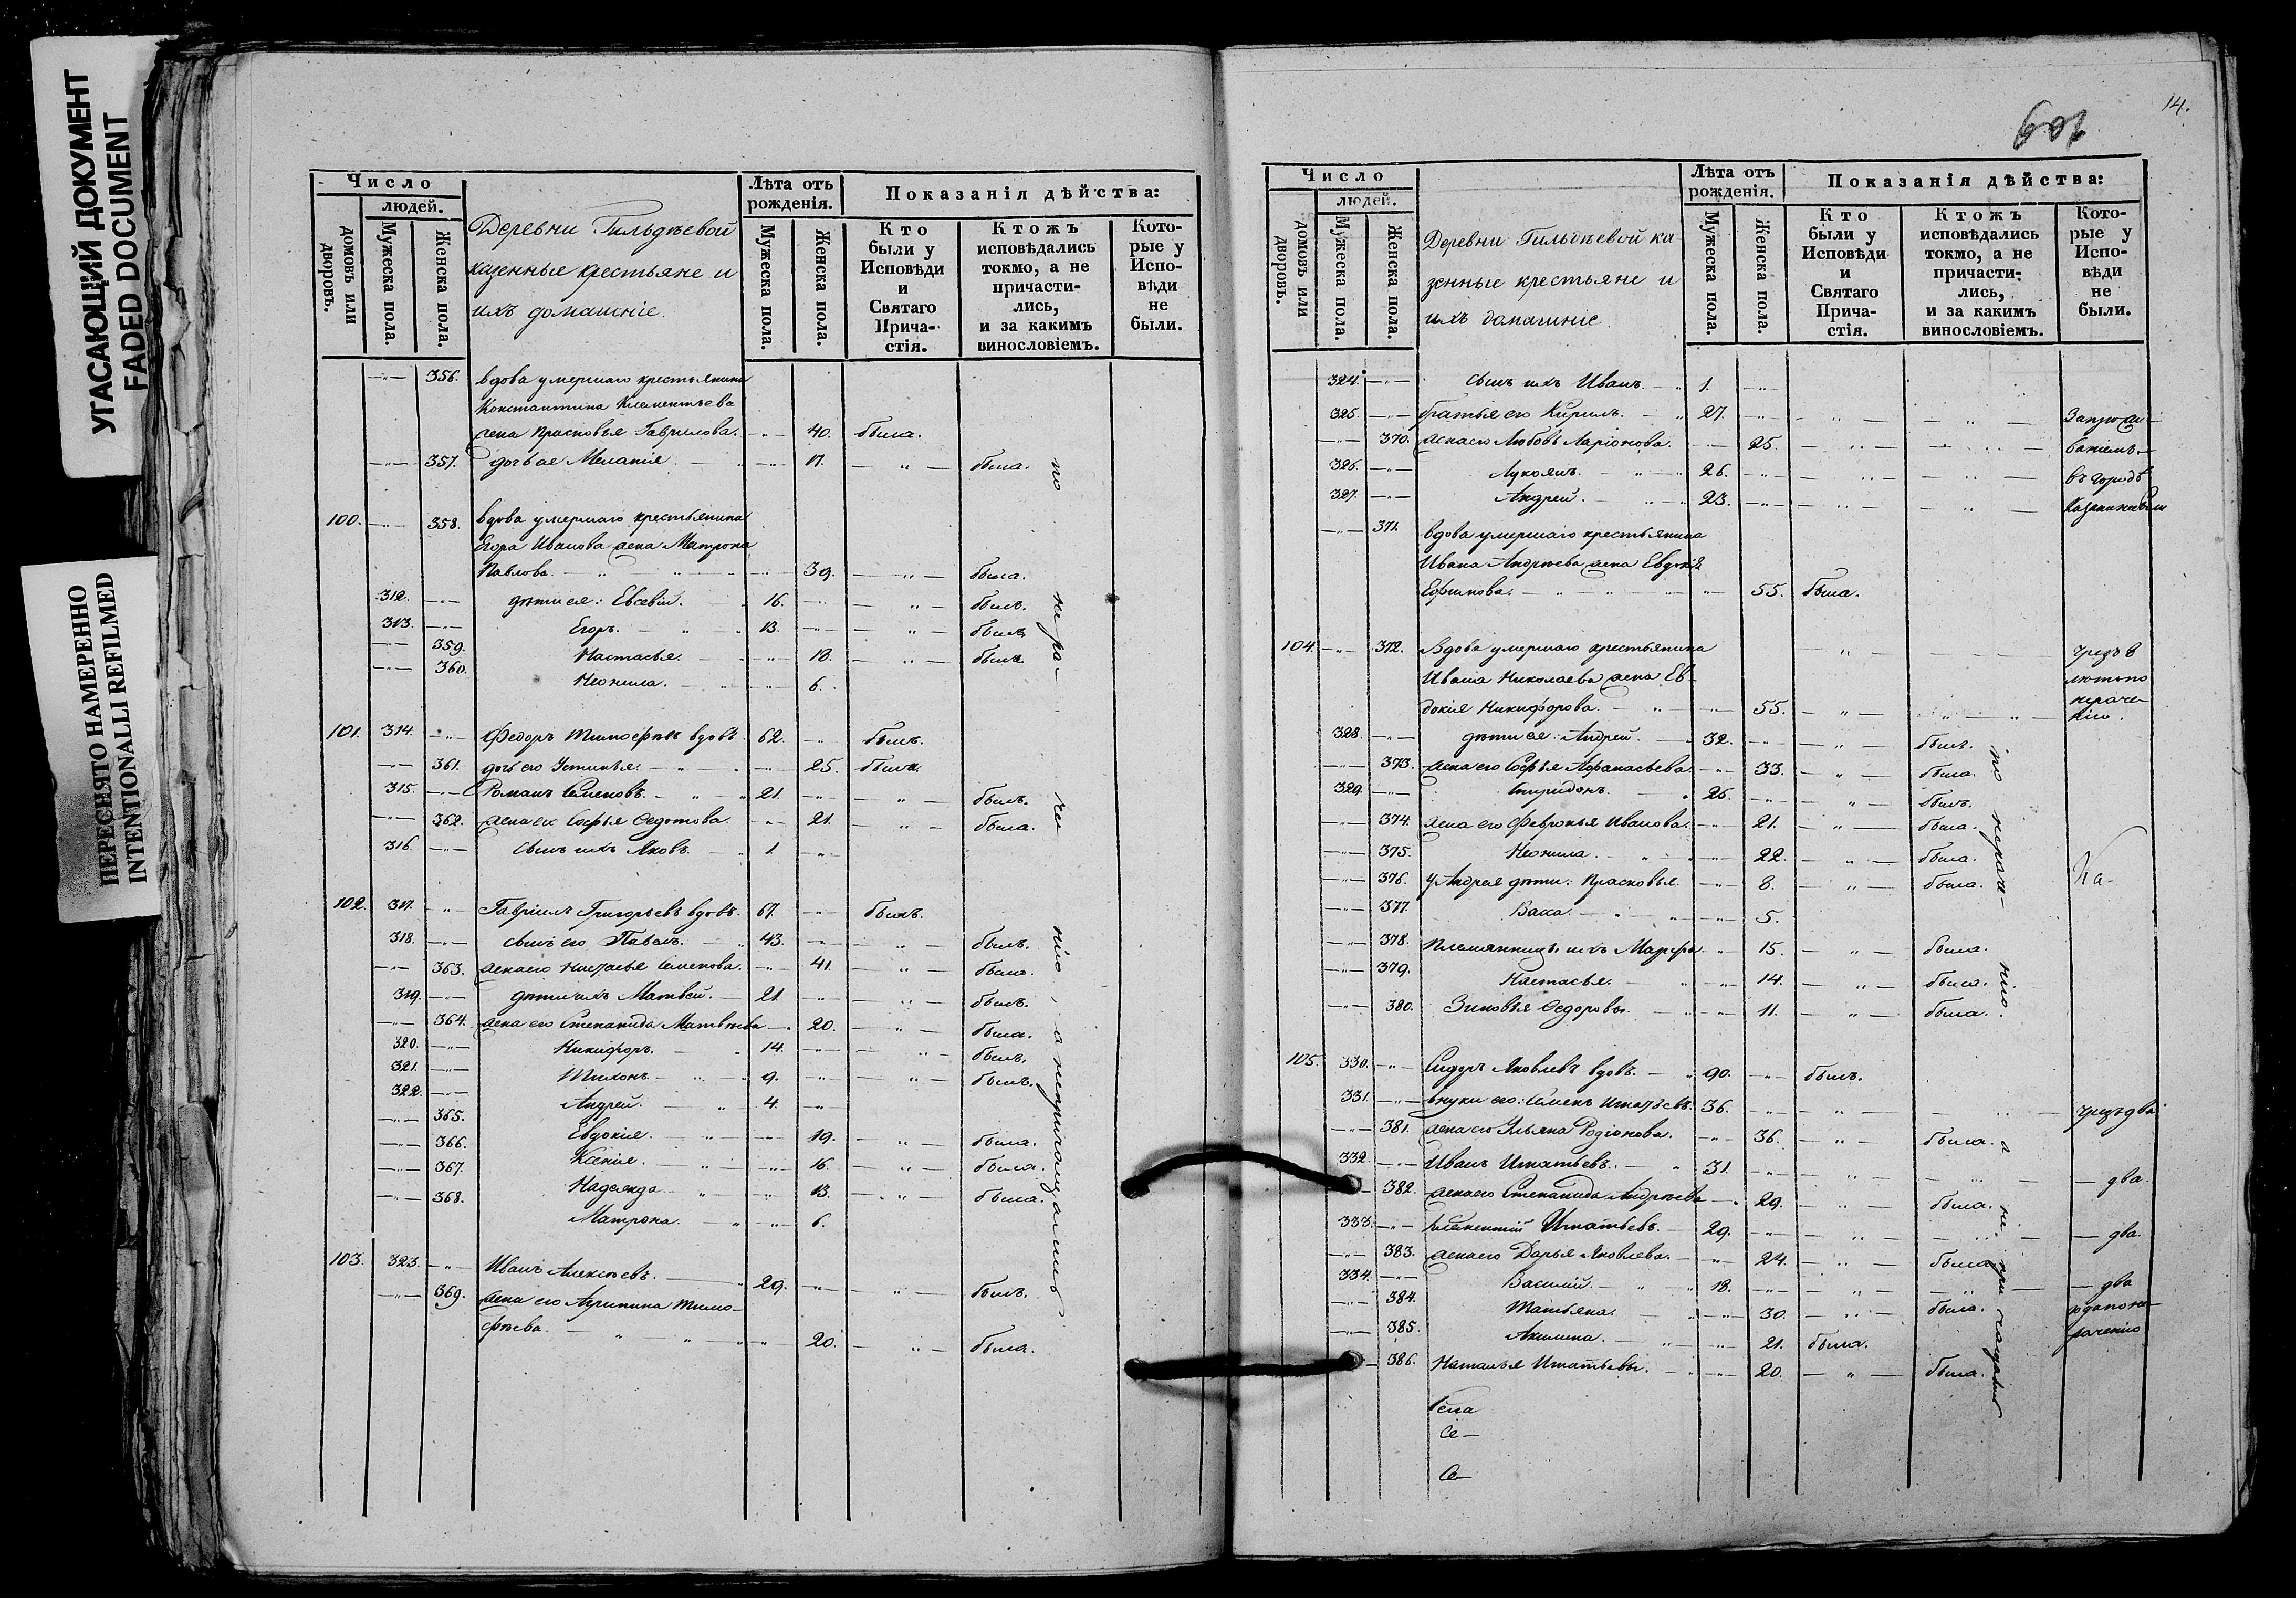 УГАСАЮЩИЙ ДОКУМЕНТ
FADED DOCUMENT
ПЕРЕСНЯТО НАМЕРЕННО
INTENTIONALLI REFILMED
Число
людей.
домовъ или дворовъ.
Мужеска пола.
Женска пола.
Деревни Гильдѣевой
казенные крестьяне и
ихъ домашніе.
Лѣта отъ рожденія.
Мужеска пола.
Женска пола.
Показанія дѣйства:
Кто были у Исповѣди и Святаго Прича-стія.
Ктожъ исповѣдались токмо, а не причасти-лись, и за какимъ винословіемъ.
Кото-рые у Испо-вѣди не были.
356. вдова умершаго крестьянина
Константина Клементьева
жена Прасковья Гаврилова. 40. была.
357. дочь ея Меланія 17. была.
100. 358. вдова умершаго крестьянина
Егора Иванова жена Матрона
Павлова. 39. была.
312. дѣти ея: Евсевій. 16. былъ.
313. Егоръ. 13. былъ
359. Настасья. 18. была.
360. Неонила. 6.
101. 314. Федоръ Тимофѣевъ вдовъ. 62. былъ.
361. дочь его Устинья. 25. была.
315. Романъ Семеновъ. 21. былъ.
362. жена его Софья Федотова. 21. была.
316. сынъ ихъ Яковъ. 1.
102. 317. Гавріилъ Григорьевъ вдовъ. 67. былъ.
318. сынъ его Павелъ. 43. былъ.
363. жена его Настасья Семенова. 41. была.
319. дѣти ихъ Матвей. 21. былъ.
364. жена его Степанида Матвѣева 20. была.
320. Никифоръ. 14. былъ.
321. Тихонъ 9. былъ.
322. Андрей. 4.
365. Евдокія. 19. была.
366. Ксенія. 16. была.
367. Надежда 13. была.
368. Матрона. 6.
103. 323. Иванъ Алексѣевъ. 29. былъ.
369. жена его Агрипина Тимо-
фѣева. 20. была.
по нера-че нію, а непричащались
14.
109
Число
людей.
домовъ или дворовъ.
Мужеска пола.
Женска пола.
Деревни Гильдѣевой ка-
зенные крестьяне и
ихъ домашніе.
Лѣта отъ рожденія.
Мужеска пола.
Женска пола.
Показанія дѣйства:
Кто были у Исповѣди и Святаго Прича-стія.
Ктожъ исповѣдались токмо, а не причасти-лись, и за какимъ винословіемъ.
Кото-рые у Испо-вѣди не были.
324. сынъ ихъ Иванъ. 1.
325. братья его Кирилъ. 27.
370. жена его Любовь Ларіонова. 25.
326. Лукоянъ. 26. въ городѣ
327. Андрей. 23.
371. вдова умершаго крестьянина
Ивана Андрѣева жена Евдокія
Ефимова. 55. была.
104. 372. Вдова умершаго крестьянина
Ивана Николаева жена Ев-
докія Никифорова. 55. нераче-
нію.
328. дѣти ея: Андрей. 32. былъ.
373. жена его Софья Афанасьева. 33. была.
329. Спиридонъ. 25. былъ.
374. жена его Февронья Иванова. 21. была.
375. Неонила. 22. была.
376. у Андрея дѣти: Прасковья. 8. была.
377. Васса. 5.
378. Племянницы ихъ Марфа 15. была.
379. Настасья. 14. была.
380. Зиновья Федоровы. 11. была.
по нерач-нію.
105. 330. Сидоръ Яковлевъ вдовъ. 90. былъ.
331. внуки его: Семенъ Игнатьевъ. 36. чрезъ два
381. жена его Ульяна Родіонова. 36. была.
332. Иванъ Игнатьевъ. 31. два.
382. жена его Степанида Андрѣева 29. была.
333. Игнатьевъ. 29. два.
383. жена его Дарья Яковлева. 24. была.
334. Василій. 18. два
384. Татьяна. 30. была. года по не-
385. Акилина. 21. была. рачению
386. Наталья Игнатьевы. 20. была.
а не при чащались
Села
Се-
Се-